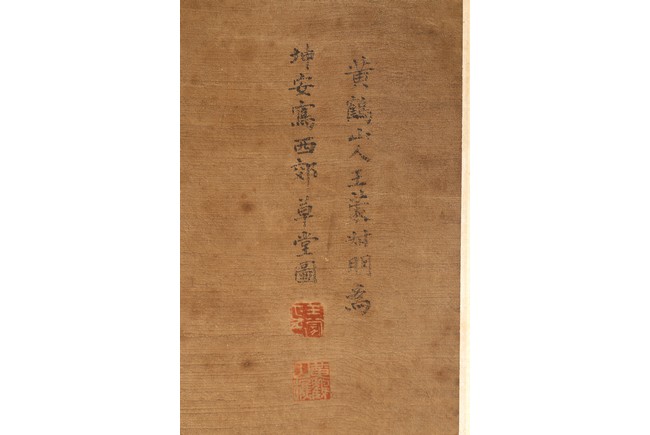 黄鶴山人王蒙叔明爲
坤安寫西郊草堂圖